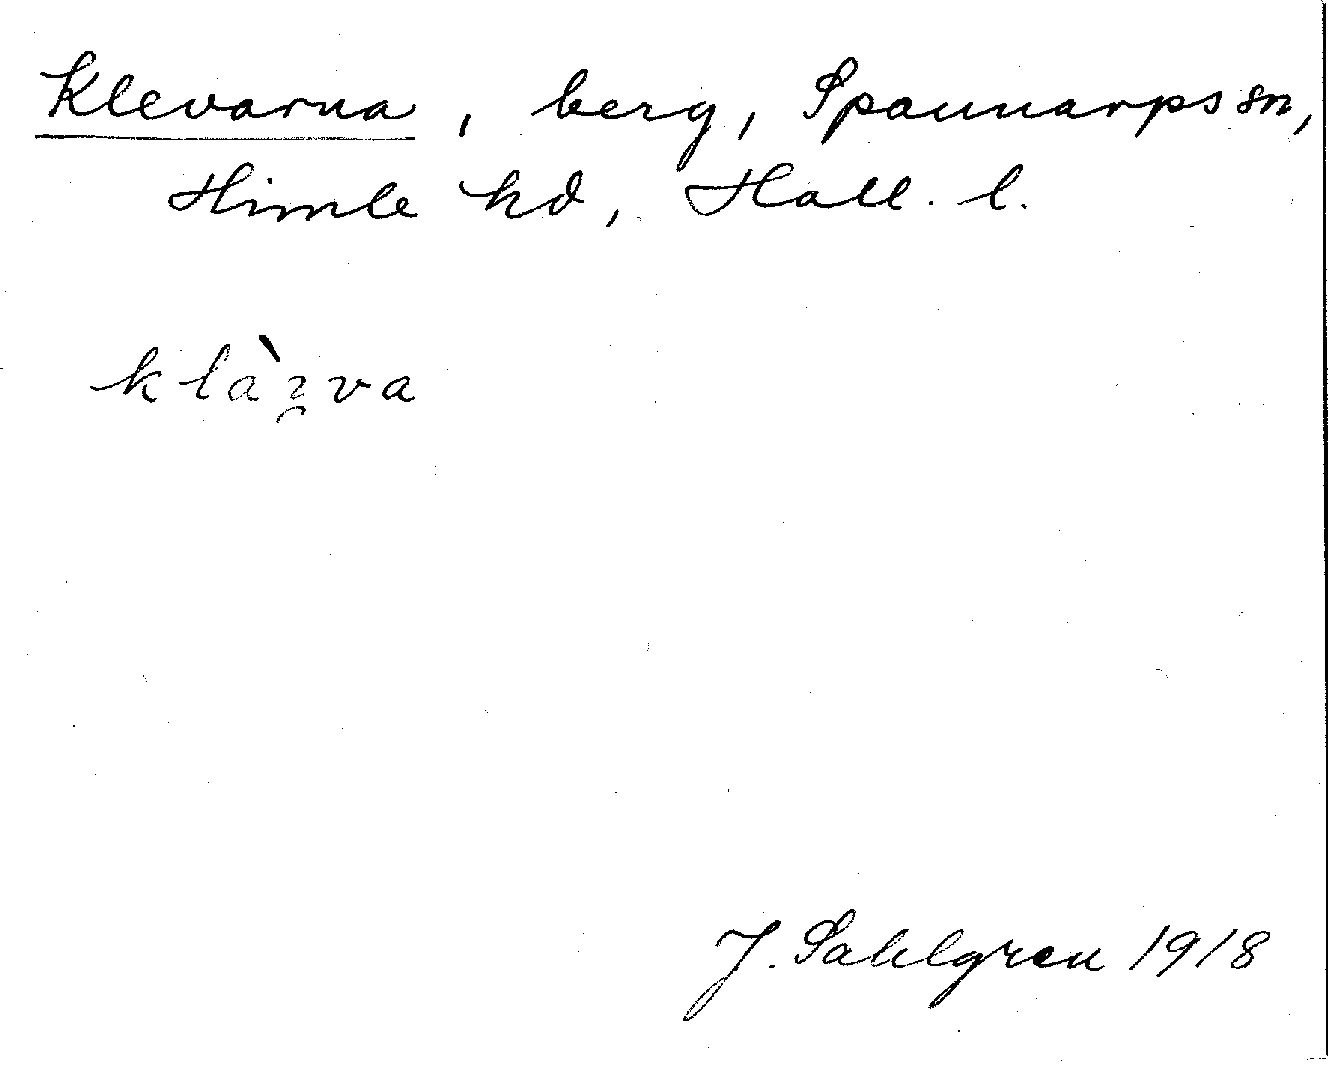 Klevarna, berg, Spannarps sn,
Himle hd, Hall. l.
J. Sahlgren 1918